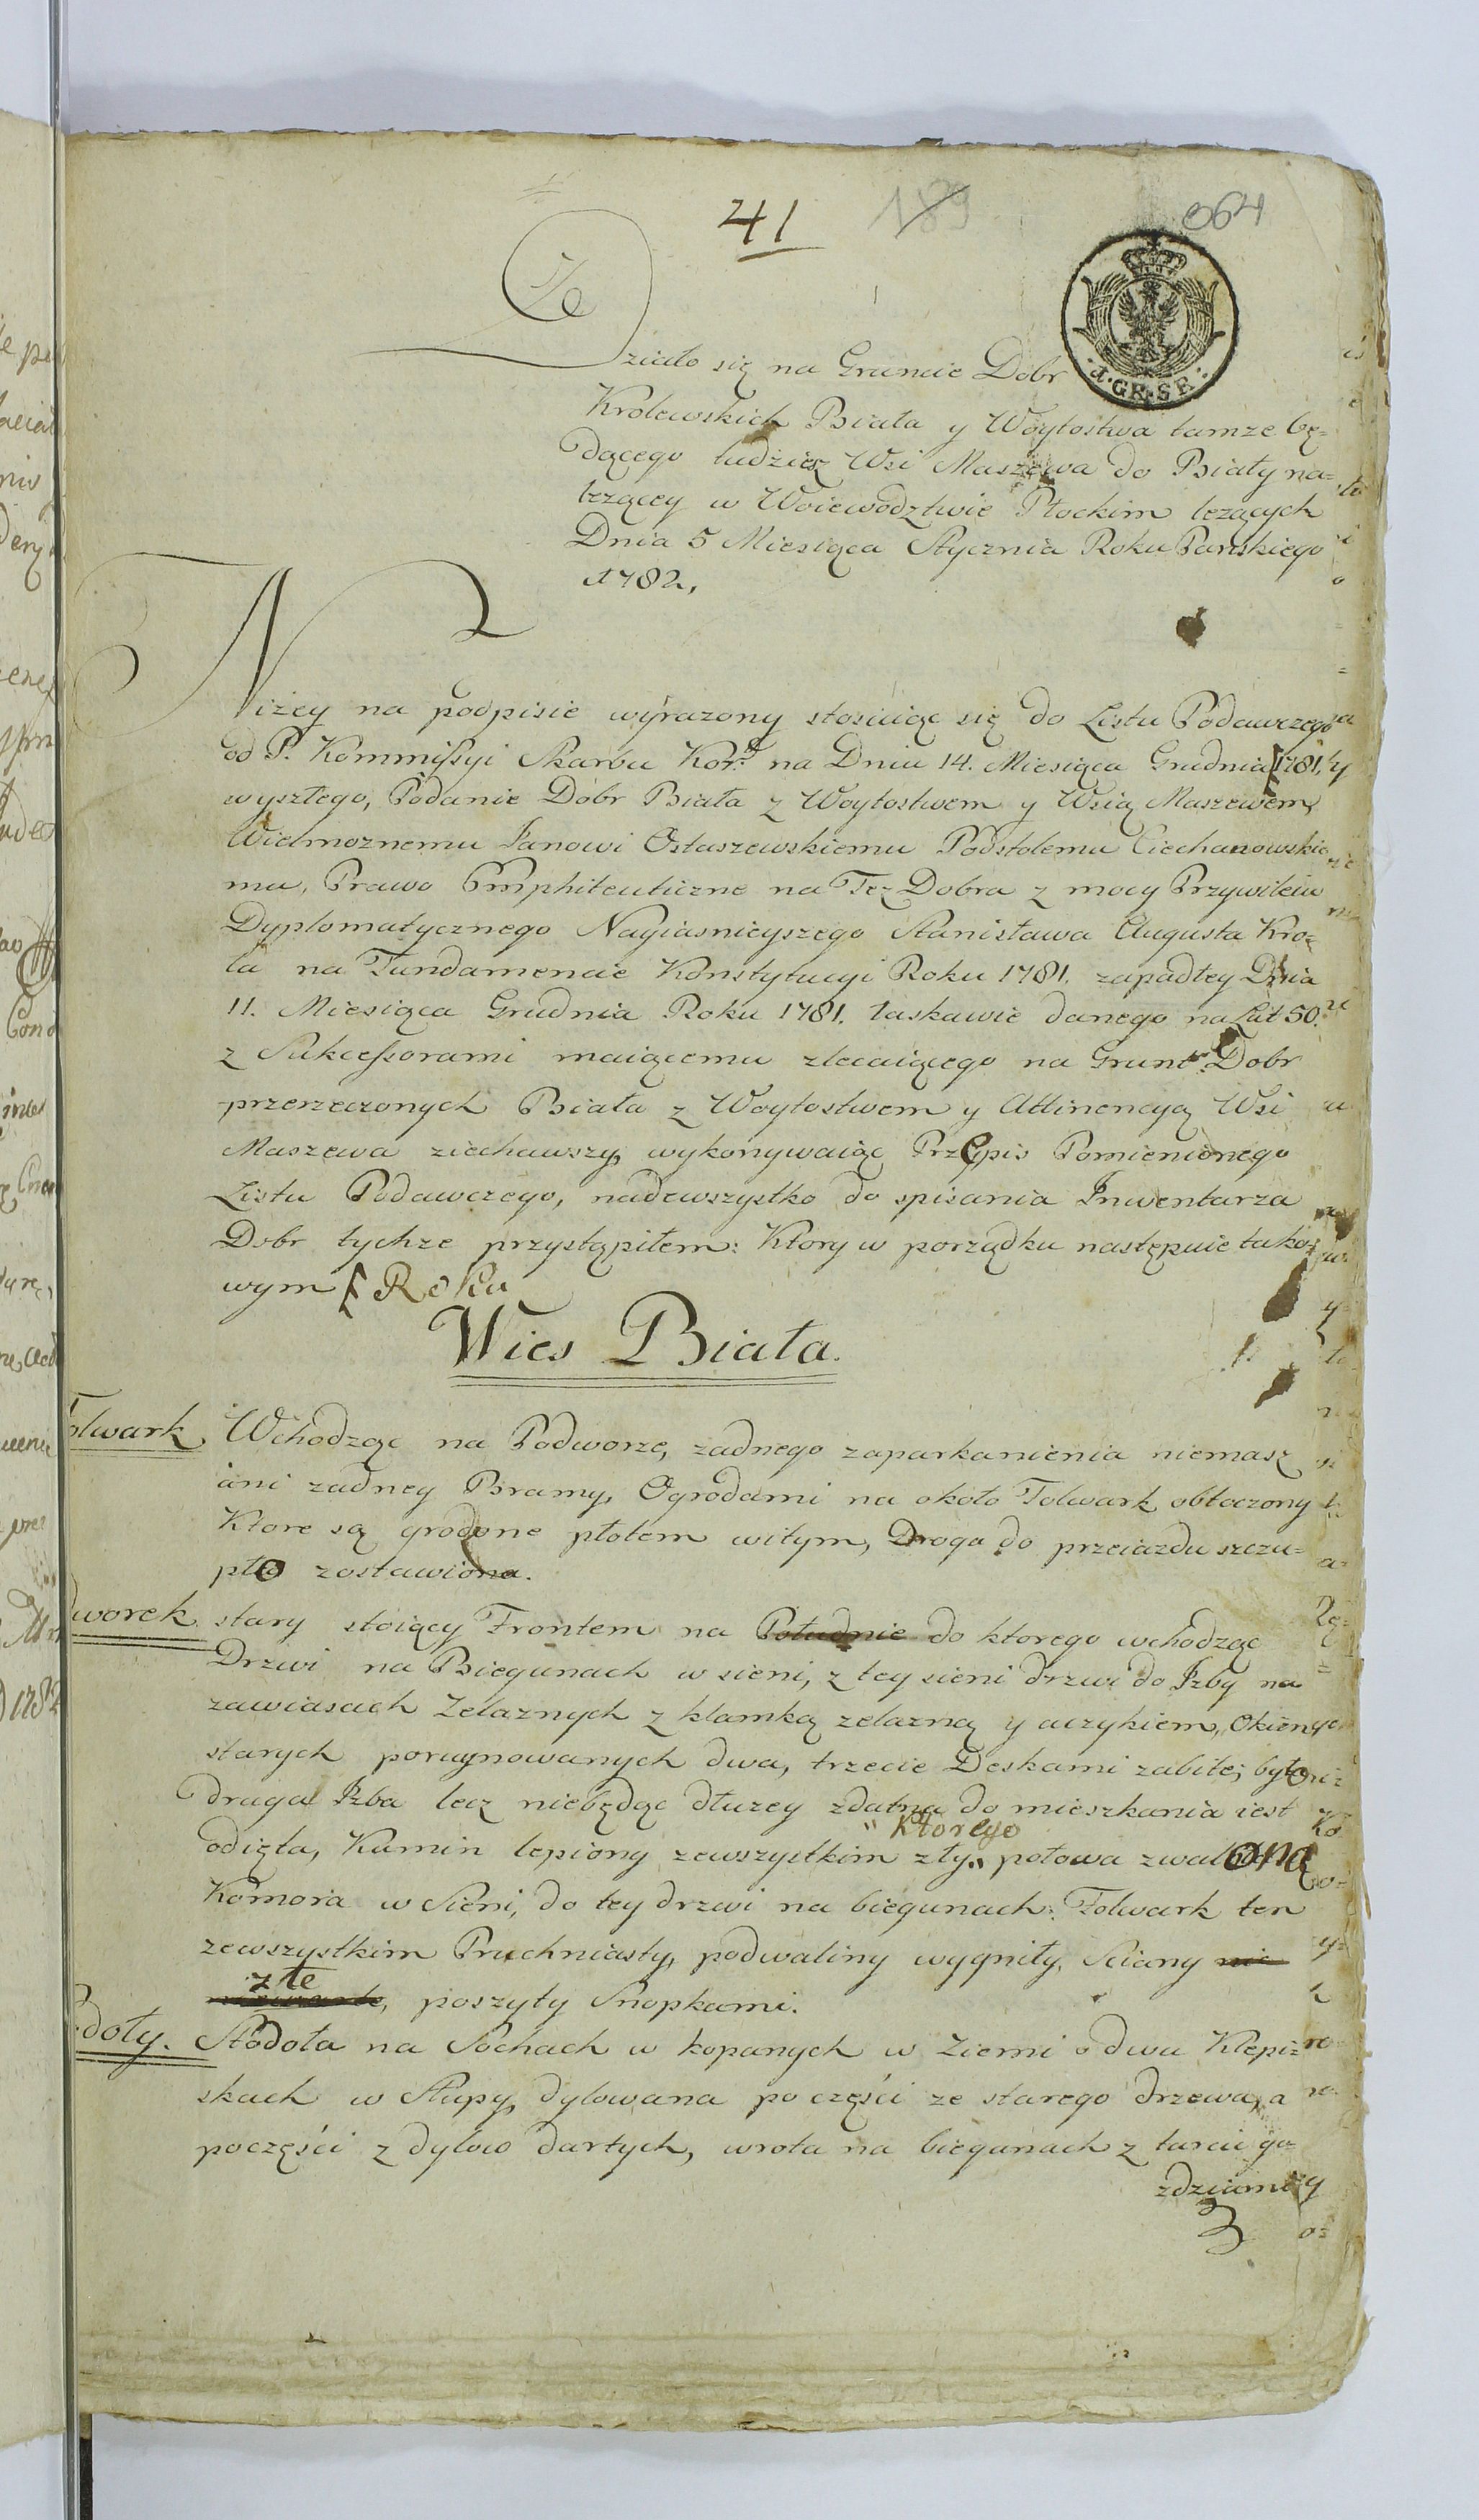 41 189 064
1·GR·SR·
Działo się na Gruncie Dobr
Krolewskich Biała y Woytostwa tamże bę=
dącego tudziesz Wsi Maszewa do Biały na=
leżącey w Woiewodztwie Płockim leżących
Dnia 5 Miesiąca Stycznia Roku Pańskiego
1782,
Niżey na podpisie wyrażony stosuiąc się do Listu Podawczego
od P. Kommissyi Skarbu Kor: na Dniu 14. Miesiąca Grudnia 1781,
wyszłego, Podanie Dobr Biała z Woytostwem y Wsią Maszewem,
Wielmożnemu Janowi Ostaszewskiemu Podstolemu Ciechanowskie
mu, Prawo Emphiteuticzne na Też Dobra z mocy Przywileiu
Dyplomatycznego Nayiaśnieyszego Stanisława Augusta Kro=
la na Fundamencie Konstytucyi Roku 1781, zapadłey Dnia
11. Miesiąca Grudnia Roku 1781. łaskawie danego na Lat 50.
z Sukcessorami maiącemu zlecaiącego na Grunt Dobr
przerzeczonych Biała z Woytostwem y Attinencyą Wsi
Maszewa ziechawszy, wykonywaiąc Przepis Pomienionego
Listu Podawczego, nadewszystko do spisania Inwentarza
Dobr tychże przystąpiłem: Ktory w porządku następuie tako=
wym Roku
Wies Biała.
olwark Wchodząc na Podworze, żadnego zaparkanienia niemasz
ani żadney Bramy, Ogrodami na około Folwark obtoczony
Ktore są grodzone płotem witym, Droga do przeiazdu szczu=
pło zostawiona.
worek stary stoiący Frontem na Południe do ktorego wchodząc
Drzwi na Biegunach w sieni, z tey sieni drzwi do Izby na
zawiasach Żelaznych z klamką żelazną y uczykiem, Okien
starych poruynowanych dwa, trzecie Deskami zabite; była
druga Izba lecz niebędąc dłużey zdatna do mieszkania iest
" Ktorego
odięta, Kumin lepiony zewszystkim zły " połowa zwalona
Komora w Sieni, do tey drzwi na biegunach: Folwark ten
zewszystkim Pruchniasty, podwaliny wygniły, Sciany nie
złe
, poszyty Snopkami.
doły. Stodoła na Sochach w kopanych w Ziemi o dwu Klepi=
skach w Słupy, dylowana po części ze starego drzewa, a
poczęści z dylow dartych, wrota na biegunach z tarcic go=
ździami